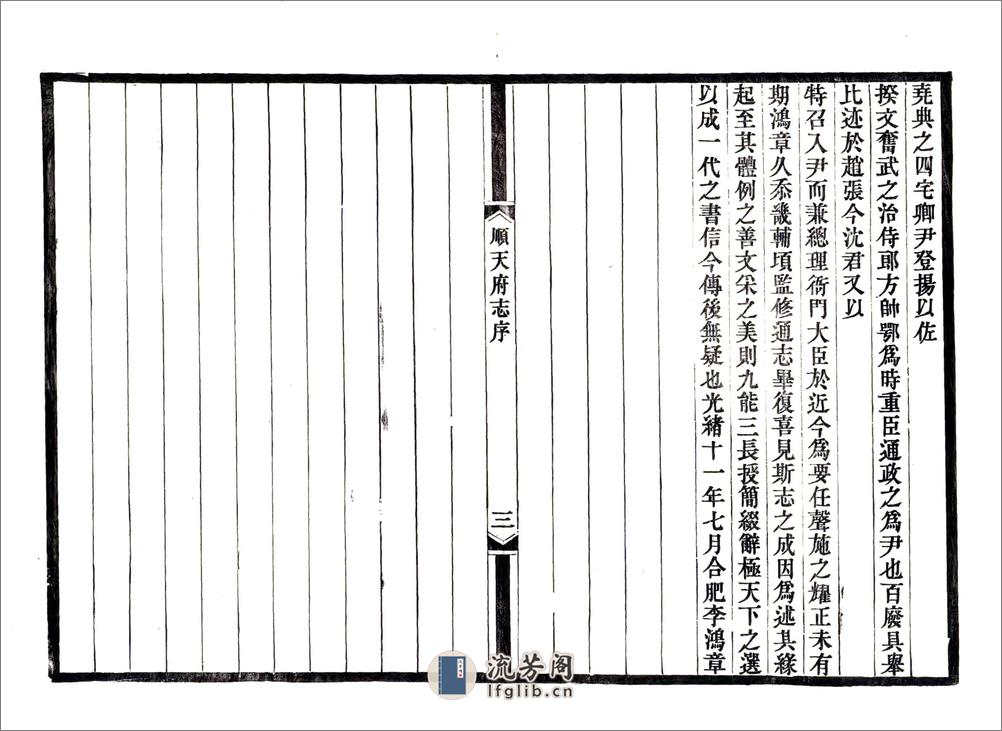 堯典之四宅卿尹登揚以佐
揆文奮武之治侍郎方帥鄂爲時重臣通政之爲尹也百廢具舉
比迹於趙張今沈君又以
特召入尹而兼總理衙門大臣於近今爲要任聲施之耀正未有
期鴻章久忝畿輔項監修通志畢復喜見斯志之成因爲述其緣
起至其體例之善文采之美則九能三長授簡綴辭極天下之選
以成一代之書信今傳後無疑也光緒十一年七月合肥李鴻章
順天府志序
三
流芳阁
lfglib.cn